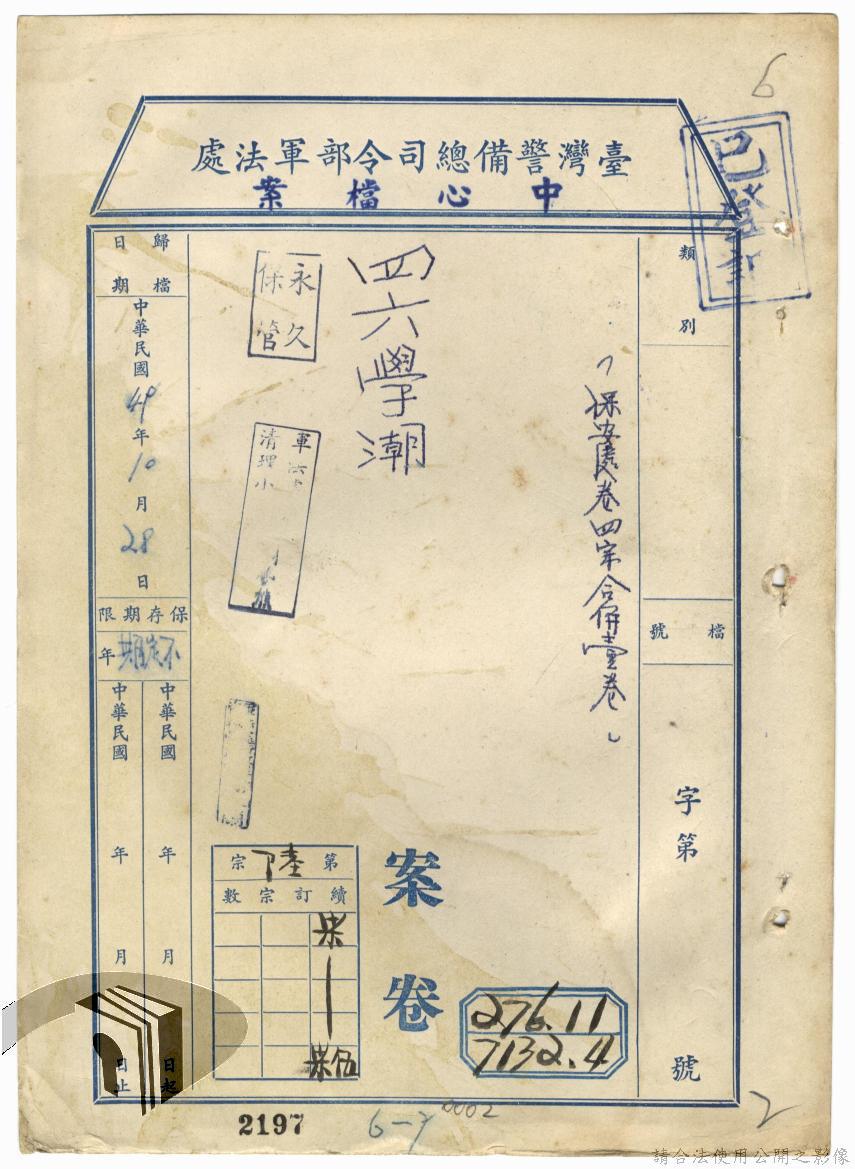 6
臺灣警備總司令部軍法處
中心檔案
已登記
類別
檔號
字第
號
（保安處卷四宗合併壹卷）
四六學潮
永久
保管
軍法
清理小
案卷
276.11
7132.4
第陸宗
續訂宗數
柒
柒伍
歸檔
日期
中華民國49年10月28日
保存期限
不定期年
中華民國 年 月 日起
中華民國 年 月 日止
2197
6-7
0002
2
請合法使用公開之影像